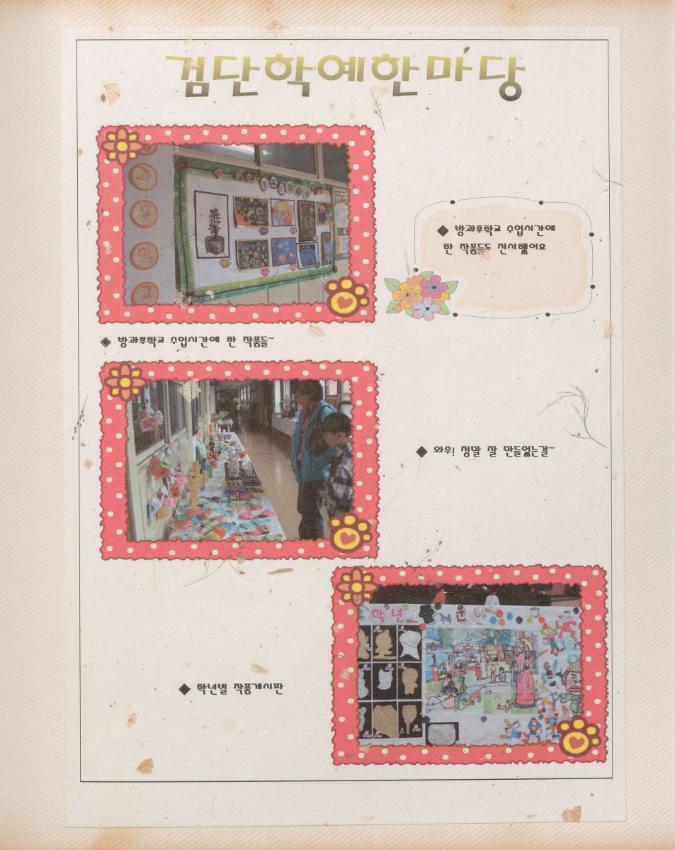 검단학예한마당
◆ 방과후학교 수업시간에
한 작품들도 전시했어요
◈ 방과후학교 수업시간에 한 작품들~
◆ 와우! 정말 잘 만들었는걸~
학년
◆ 학년별 작품게시판